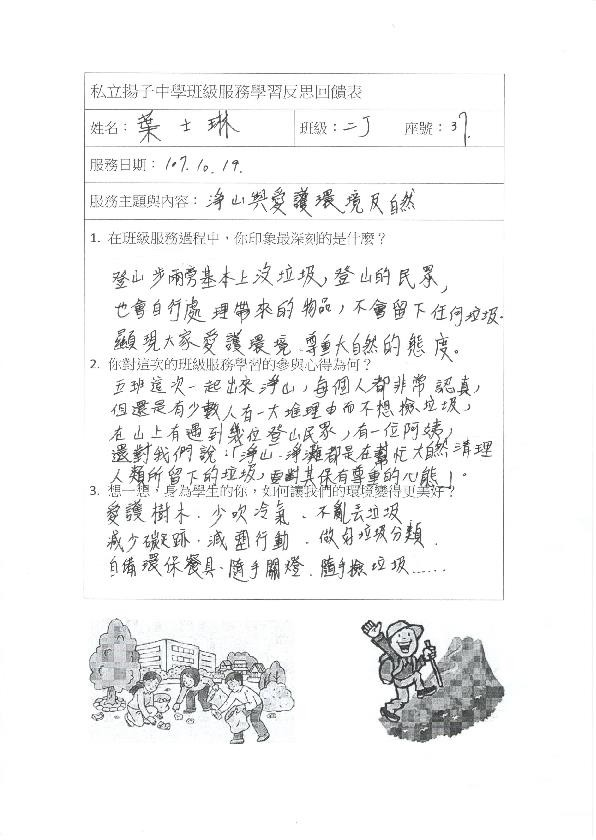 私立揚子中學班級服務學習反思回饋表
姓名：葉士琳 班級：二丁 座號：37.
服務日期：107.10.19.
服務主題與內容：淨山與愛護環境及自然
1. 在班級服務過程中，你印象最深刻的是什麼？
登山步兩旁基本上沒垃圾，登山的民眾，
也會自行處理帶來的物品，不會留下任何垃圾.
顯現大家愛護環境、尊重大自然的態度。
2. 你對這次的班級服務學習的參與心得為何？
五班這次一起出來淨山，每個人都非常認真，
但還是有少數人有一大堆理由而不想撿垃圾，
在山上有遇到幾位登山民眾，有一位阿姨，
還對我們說：「淨山、淨灘都是在幫忙大自然清理
人類所留下的垃圾，要對其保有尊重的心態！。
3. 想一想，身為學生的你，如何讓我們的環境變得更美好？
愛護樹木、少吹冷氣、不亂丟垃圾
減少碳足跡、減塑行動、做好垃圾分類、
自備環保餐具、隨手關燈、隨手撿垃圾......